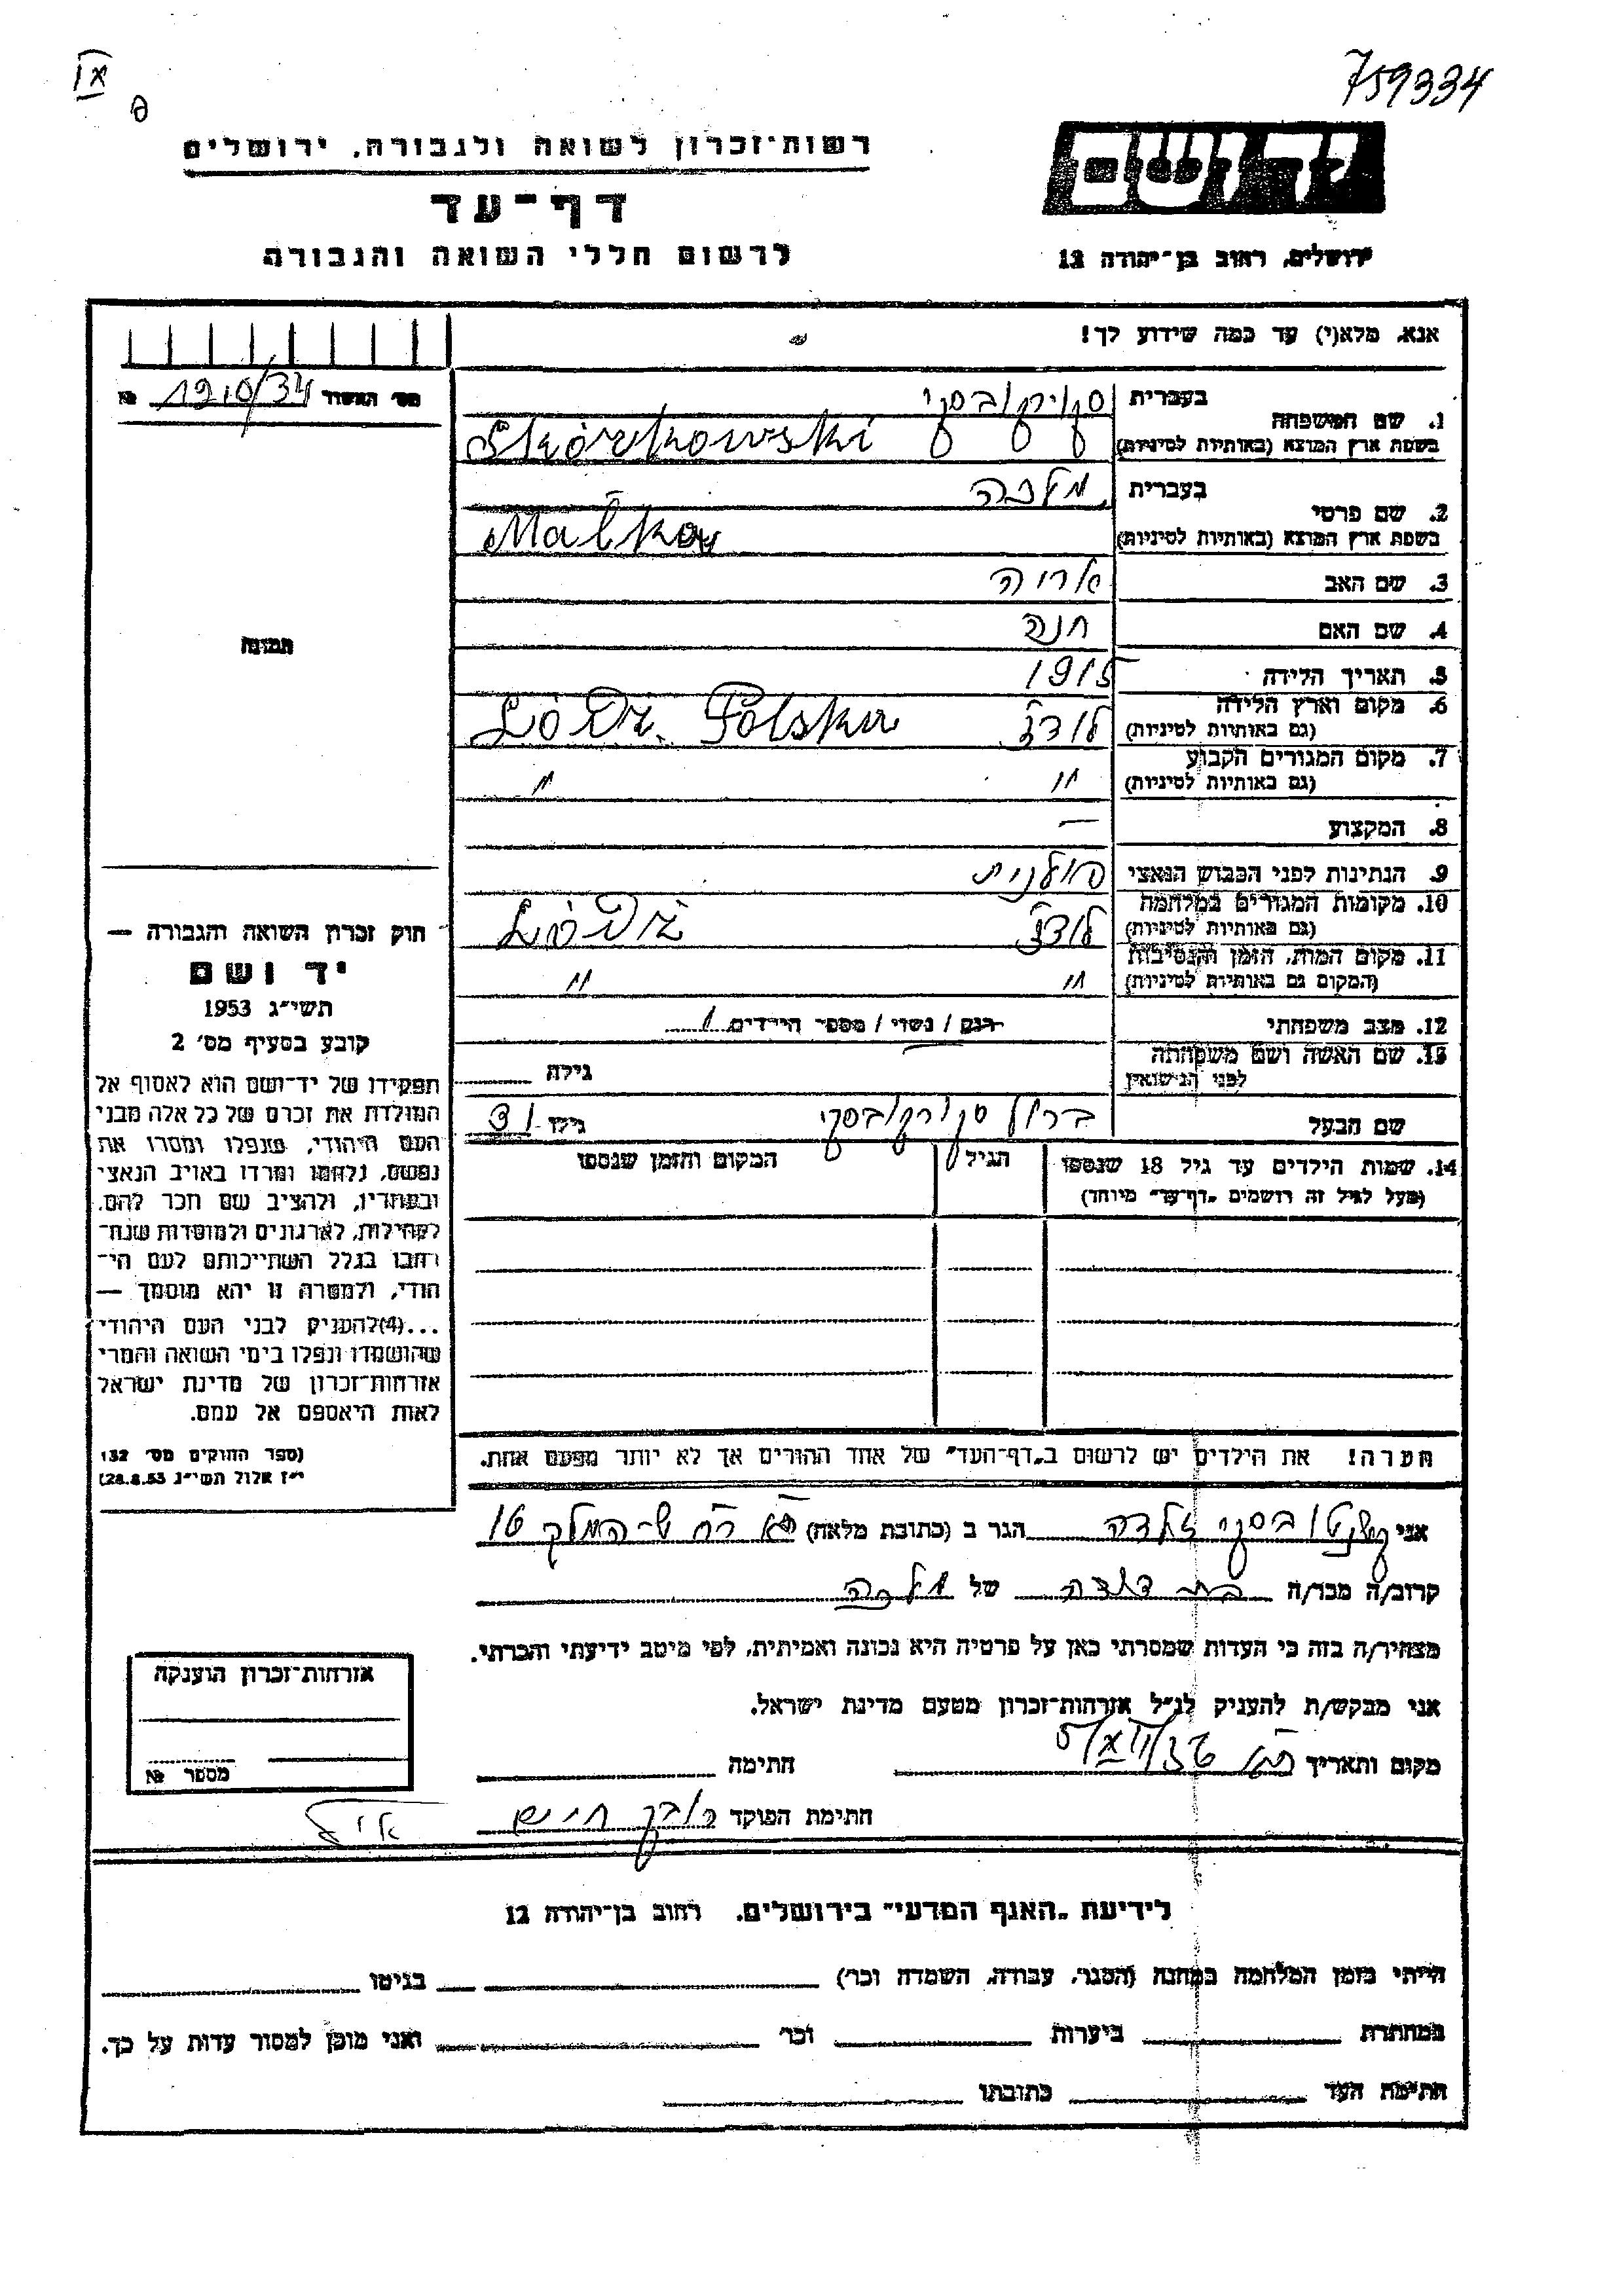 759334
IX
רשות-זכרון לשואה ולגבורה, ירושלים
יד ושם
דף-עד
לרשום חללי השואה והגבורה
ירושלים, רחוב בן-יהודה 12
אנא, מלא(י) עד כמה שידוע לך!
מס' האשור 1910/34 №
1. שם המשפחה
בעברית
בשפת ארץ המוצא (באותיות לטיניות)
Skórkowski
2. שם פרטי
בעברית מלכה
בשפת ארץ המוצא (באותיות לטיניות) Malka
3. שם האב אריה
4. שם האם חנה
5. תאריך הלידה 1915
6. מקום וארץ הלידה
(גם באותיות לטיניות) לודז' Łódź. Polska
7. מקום המגורים הקבוע
(גם באותיות לטיניות) " "
8. המקצוע —
9. הנתינות לפני הכבוש הנאצי פולנית
10. מקומות המגורים במלחמה
(גם באותיות לטיניות) לודז' Łódź
11. מקום המות, הזמן והנסיבות
(המקום גם באותיות לטיניות) " "
12. מצב משפחתי רוק / נשוי / מספר הילדים 1
13. שם האשה ושם משפחתה
לפני הנישואין גילה
שם הבעל ברוך סקורקובסקי גילו 31
14. שמות הילדים עד גיל 18 שנספו
(מעל לגיל זה רושמים "דף-עד" מיוחד)
הגיל
המקום והזמן שנספו
הערה! את הילדים יש לרשום ב"דף-העד" של אחד ההורים אך לא יותר מפעם אחת.
תמונה
חוק זכרון השואה והגבורה —
יד ושם
תשי"ג 1953
קובע בסעיף מס' 2
תפקידו של יד-ושם הוא לאסוף אל
המולדת את זכרם של כל אלה מבני
העם היהודי, שנפלו ומסרו את
נפשם, נלחמו ומרדו באויב הנאצי
ובעוזריו, ולהציב שם וזכר להם,
לקהילות, לארגונים ולמוסדות שנח-
רבו בגלל השתייכותם לעם הי-
הודי, ולמטרה זו יהא מוסמך —
...(4)להעניק לבני העם היהודי
שהושמדו ונפלו בימי השואה והמרי
אזרחות-זכרון של מדינת ישראל
לאות היאספם אל עמם.
(ספר החוקים מס' 132
י"ז אלול תשי"ג 28.8.53)
אני זלדה הגר ב (כתובת מלאה) המלך 16
קרוב/ה מכר/ה בת דודה של מלכה
מצהיר/ה בזה כי העדות שמסרתי כאן על פרטיה היא נכונה ואמיתית, לפי מיטב ידיעתי והכרתי.
אני מבקש/ת להעניק לנ"ל אזרחות-זכרון מטעם מדינת ישראל.
מקום ותאריך
חתימה
חתימת הפוקד
אזרחות-זכרון הוענקה
מספר №
לידיעת "האגף המדעי" בירושלים, רחוב בן-יהודה 12
הייתי בזמן המלחמה במחנה (הסגר, עבודה, השמדה וכר') בגיטו
במחתרת ביערות וכר' ואני מוכן למסור עדות על כך.
חתימת העד כתובתו